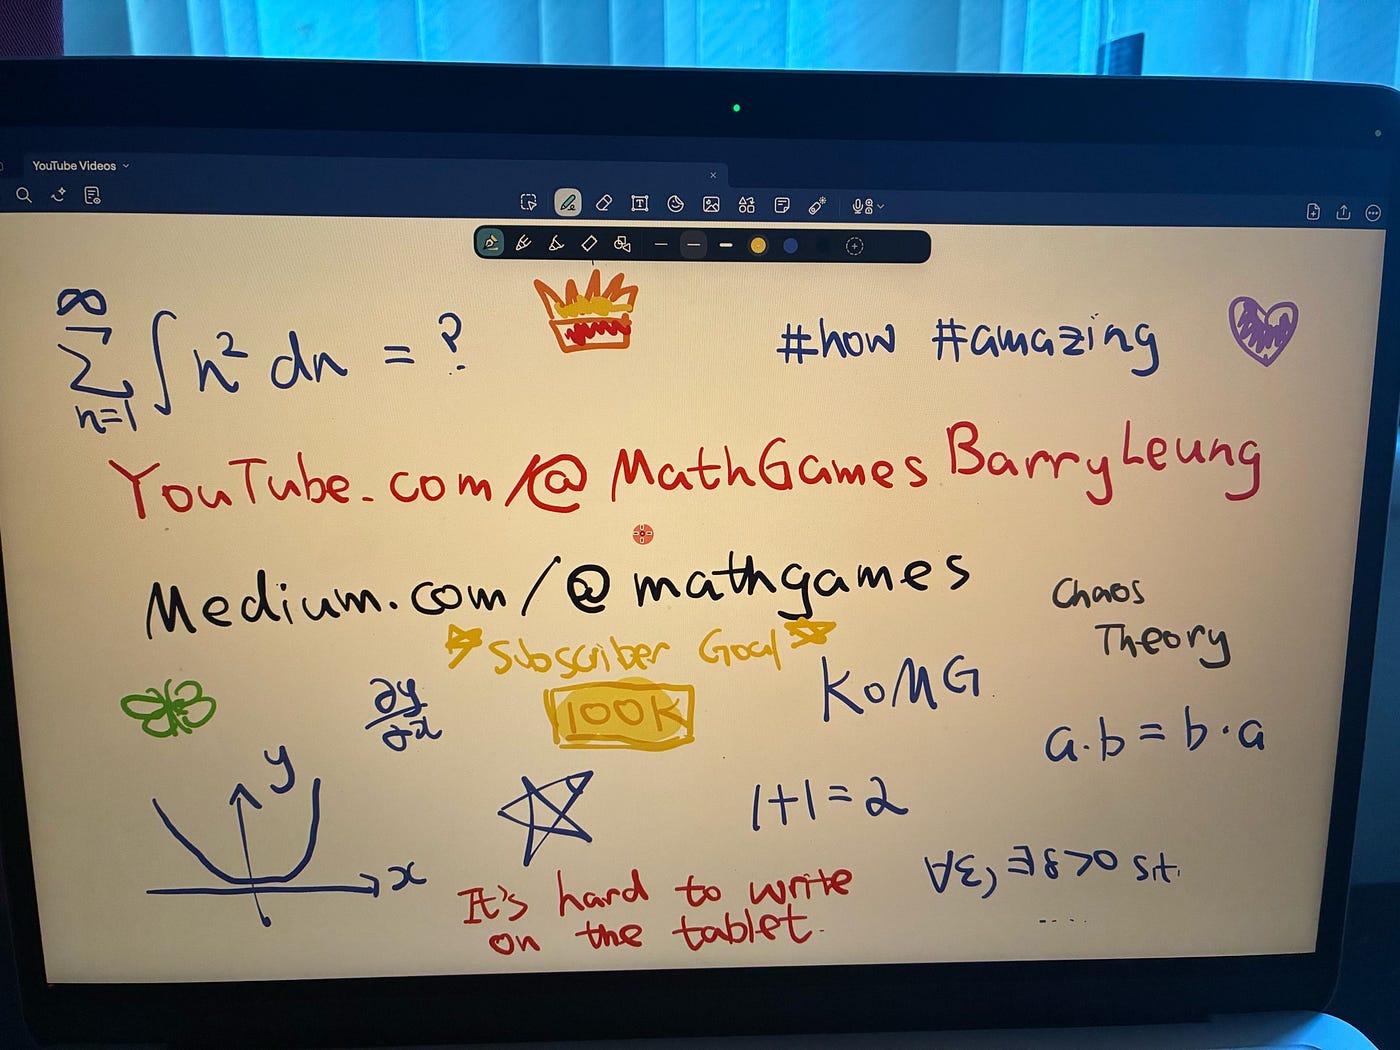 YouTube Videos
∞
∑ ∫ n² dn = ?
n=1
#how #amazing
YouTube.com/@MathGamesBarryLeung
Medium.com/@mathgames
Chaos
Theory
Subscriber Goal
100K
KOMG
∂y
∂x
a·b = b·a
y
1+1=2
x
∀ε, ∃δ>0 s.t.
.....
It's hard to write
on the tablet.